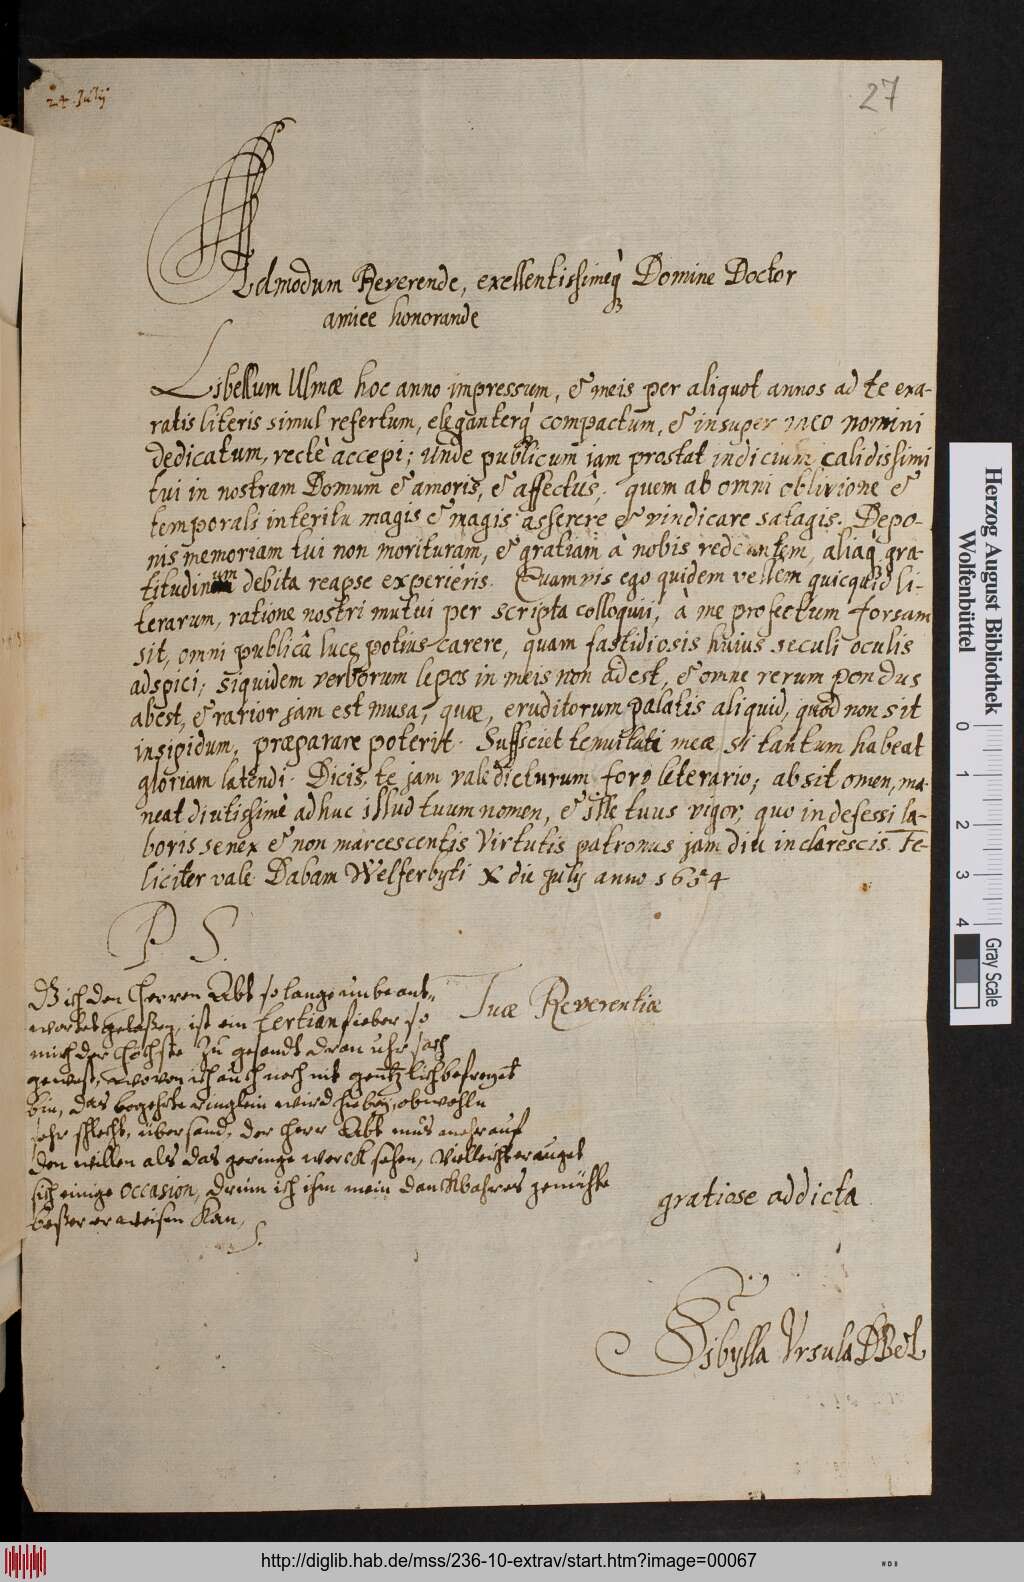 24 Julij
27
Admodum Reverende, exellentissimeq̀ Domine Doctor
amice honorande
Libellum Ulmæ hoc anno impressum, & meis per aliquot annos ad te exa-
ratis literis simul refertum, eleganterq̀ compactum, & insuper meo nomini
dedicatum, rectè accepi; unde publicum jam prostat indicium calidissimi
tui in nostram Domum & amoris, & affectus, quem ab omni oblivione &
temporali interitu magis & magis asserere & vindicare satagis. Depo-
nis memoriam tui non morituram, & gratiam à nobis redeuntem, aliaq̀ gra-
titudinum debita reapse experiêris. Quamvis ego quidem vellem quicquid li-
terarum, ratione nostri mutui per scripta colloquii, à me profectum forsam
sit, omni publicâ luce potius carere, quam fastidiosis huius seculi oculis
adspici; siquidem verborum lepos in meis non adest, & omne rerum pondus
abest, & rarior jam est musa, quæ, eruditorum palatis aliquid, quod non sit
insipidum, præparare poterit. Sufficiet tenuitati meæ si tantum habeat
gloriam latendi. Dicis, te jam valedicturum foro literario; absit omen, ma-
neat diutissimè adhuc illud tuum nomen, & ille tuus vigor, quo indefessi la-
boris senex & non marcescentis Virtutis patronus jam diu inclarescis. Fe-
liciter vale. Dabam Welferbyti X die Julij anno 1654
P S.
Tuæ Reverentiæ
Dz ich den Herren Abt so lange unbeant-
wortet gelaßen, ist ein tertian fieber so
mich der Höchste zu gesandt dran uhrsach
gewest, wovon ich auch noch nit gentzlich befreyet
bin, das begehrte ringlein wird hiebey, obwohln
sehr schlecht, übersand, der Herr Abt mus mehr auf
den willen als das geringe werck sehen, Vielleicht eräuget
sich einige occasion, drinn ich ihm mein danckbahres gemühte
beßer erweisen kan,
S.
gratiose addicta
Sibylla Ursula DBeL
Herzog August Bibliothek
Wolfenbüttel
0 1 2 3 4
Gray Scale
http://diglib.hab.de/mss/236-10-extrav/start.htm?image=00067
WDB